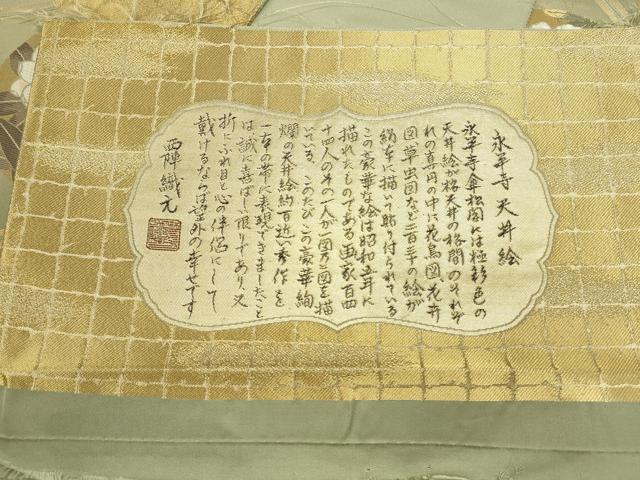 永平寺天井絵
永平寺傘松閣には極彩色の
天井絵が格天井の格間のそれぞ
れの真円の中に花鳥図花卉
図草虫図など二百三十の絵が
絹布に描いて貼り付られている
この豪華な絵は昭和五年に
描れたものである画家百四
十四人のその一人が一図乃二図を描
いている、このたびこの豪華絢
爛の天井絵約百近い秀作を
一本の帯に表現できましたこと
は誠に喜ばしい限りであり、又
折にふれ目と心の伴侶にして
戴けるならば望外の幸せです
西陣織元